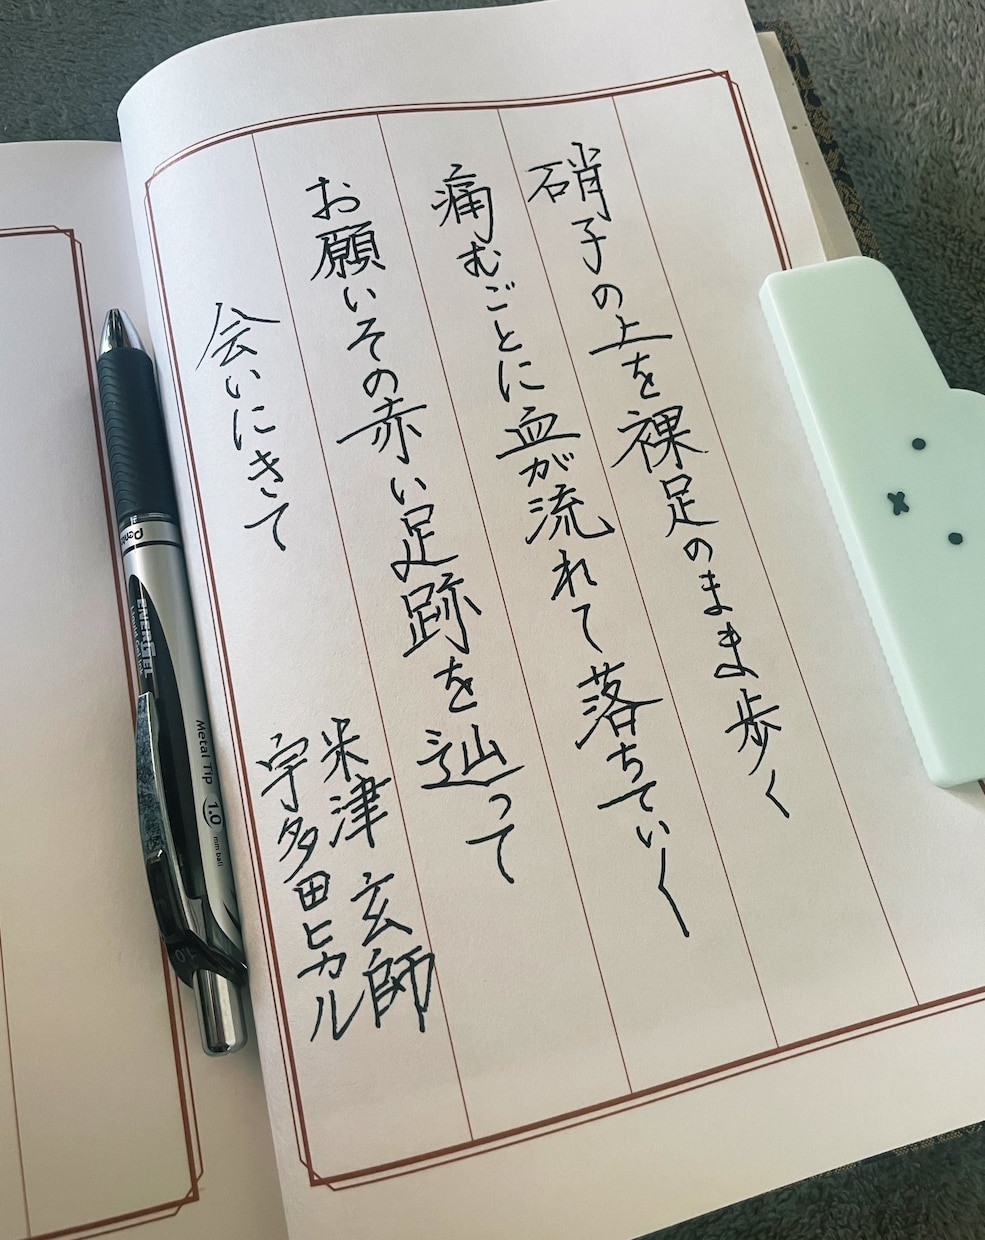 硝子の上を裸足のまま歩く
痛むごとに血が流れて落ちていく
お願いその赤い足跡を辿って
会いにきて
米津玄師
宇多田ヒカル
Pentel
ENERGEL
Liquid Gel Ink
Metal Tip 1.0 mm ball
10